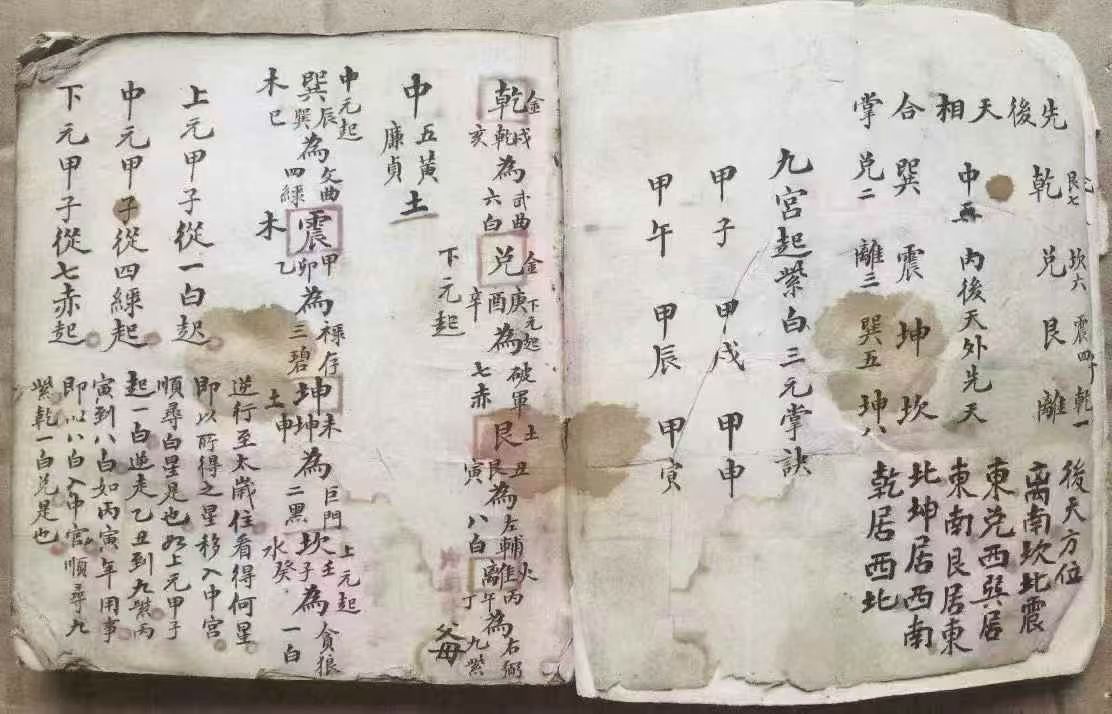 先後天相合掌
艮七 坎六 震四 乾一
乾 兌 艮 離
中五 内後天外先天
巽 震 坤 坎
兌二 離三 巽五 坤八
後天方位
离南坎北震
東兌西巽居
東南艮居東
北坤居西南
乾居西北
九宮起紫白三元掌訣
甲子 甲戌 甲申
甲午 甲辰 甲寅
金戌 武曲 金庚 下元起 破軍 土丑 左輔 火丙 右弼
乾乾為 兌酉為 艮艮為 離午為
亥 六白 辛 七赤 寅 八白 丁 九紫
中五黃土
廉貞
下元起
父母
中元起 辰 文曲 甲 祿存 未 巨門 上元起 壬 貪狼
巽巽為 震卯為 坤坤為 坎子為
木巳 四綠 木乙 三碧 土申 二黑 水癸 一白
上元甲子從一白起
中元甲子從四綠起
下元甲子從七赤起
逆行至太歲住看得何星
即以所得之星移入中宮
順尋白星是也如上元甲子
起一白逆走乙丑到九紫丙
寅到八白如丙寅年用事
即以八白入中宮順尋九
紫乾一白兌是也